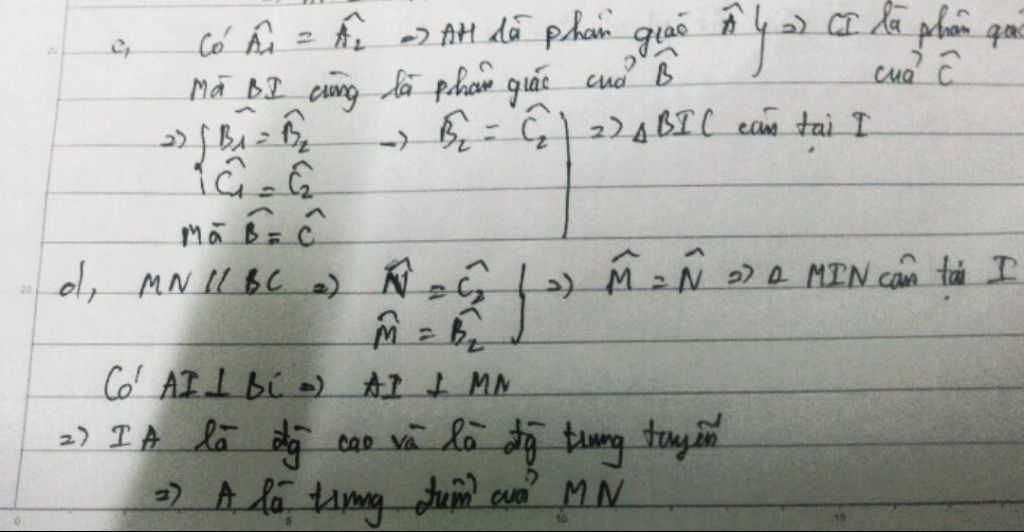 c, Có Â₁ = Â₂ => AH là phân giác Â } => CI là phân giác
Mà BI cũng là phân giác của B̂ của Ĉ
=> { B̂₁ = B̂₂ -> B̂₂ = Ĉ₂ => △BIC cân tại I
Ĉ₁ = Ĉ₂
Mà B̂ = Ĉ
d, MN // BC => N̂ = Ĉ₂ } => M̂ = N̂ => △ MIN cân tại I
M̂ = B̂₂
Có AI ⊥ BC => AI ⊥ MN
=> IA là đg cao và là đg trung tuyến
=> A là trung điểm của MN